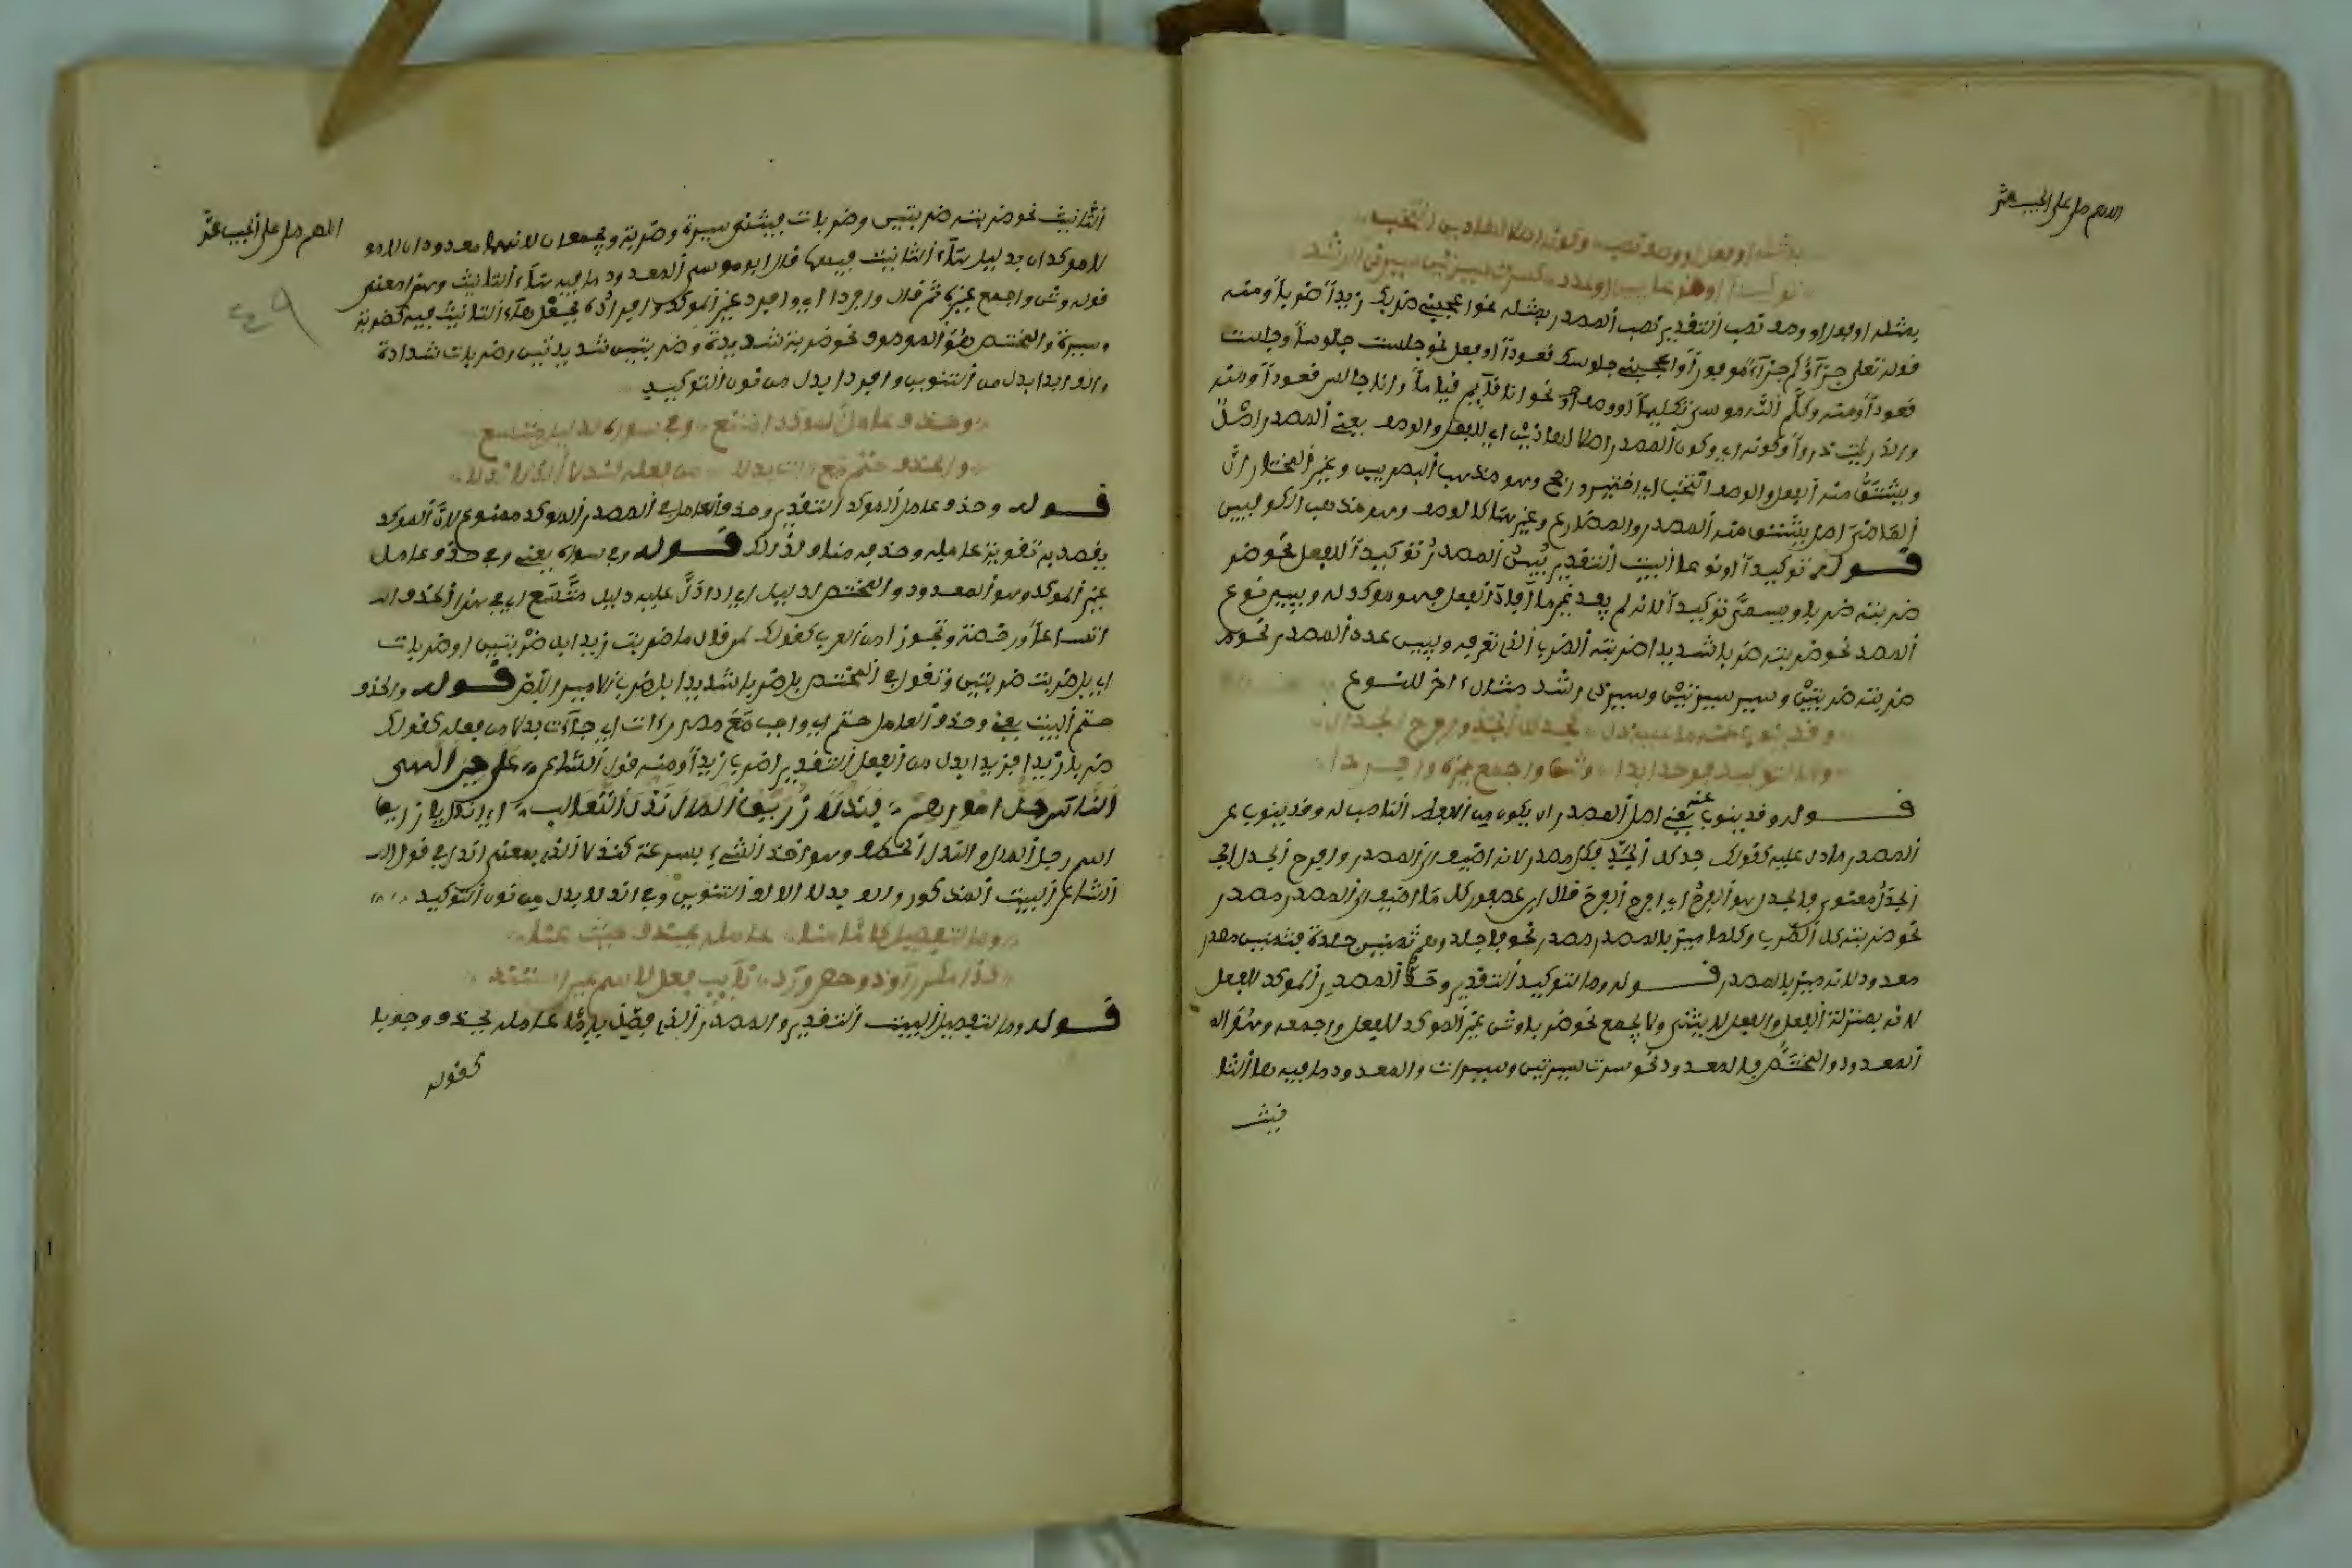 بمثله او فعل او وصف نصب وكونه اصلا لهذين انتخب
توكيدا او نوعا يبين او عدد كسرت سيرتين سير ذي رشد
بمثله او فعل او وصف نصب التقدير نصب المصدر بمثله نحو اعجبني ضربك زيدا ضربا ومنه
قوله تعلى جزاؤكم جزاء موفورا واعجبني جلوسك قعودا او فعل نحو جلست جلوسا وجلست
قعودا ومنه وكلم الله موسى تكليما او وصف نحو انا قآيم قياما وانا جالس قعودا ومنه
والذاريت ذروا وكونه اي وكون المصدر اصلا لهاذين اي للفعل والوصف يعني المصدر اصل
ويشتق منه الفعل والوصف انتخب اي اختير ورجح وهو مذهب البصريين وغير المختار ان
الماضي اصل يشتق منه المصدر والمضارع وغيرهما كالوصف وهو مذهب الكوفيين
قوله توكيدا او نوعا البيت التقدير يبين المصدر توكيدا للفعل نحو ضر
ضربته ضربا ويسمى توكيدا لانه لم يفد غير ما افاد الفعل فهو موكد له ويبين نوع
المصدر نحو ضربته ضربا شديدا ضربته الضرب الذي تعرفه ويبين عدد المصدر نحو
ضربته ضربتين وسير سيرتين وسير ذي رشد مثال ءاخر للنوع
وقد ينوب عنه ما عليه دل كجد كل الجد وافرح الجذل
وما لتوكيد فوحد ابدا وثن واجمع غيره وافردا
قوله وقد ينوب عنه يعني اصل المصدر ان يكون من لفظ الناصب له وقد ينوب عن
المصدر ما دل عليه كقولك جد كل الجد فكل مصدر لانه اضيف الى المصدر وافرح الجذل
الجذل مفعول فالجذل هو الفرح اي افرح الفرح قال ابن عصفور كل ما اضيف الى المصدر مصدر
نحو ضربته كل الضرب وكلما ميز بالمصدر مصدر نحو فاجلدوهم ثمنين جلدة فثمنين مصدر
معدود لانه ميز بالمصدر قوله وما لتوكيد التقدير وحد المصدر الموكد للفعل
لانه بمنزلة الفعل والفعل لا يثنى ولا يجمع نحو ضربا وثن غير الموكد للفعل واجمعه وهو
المعدود والمختص فالمعدود نحو سرت سيرتين وسيرات والمعدود ما فيه هاء التا
نيث
اللهم صل على الحبيب
التانيث نحو ضربته ضربتين وضربات فيثنى سيرة وضربة ويجمعان لانهما معدودان لا مو
لا موكدان بدليل هاء التانيث فيهما قال ابو موسى المعدود ما فيه هاء التانيث وهذا معنى
قوله وثن واجمع غيره ثم قال وافردا اي وافرد غير الموكد وافراده بجعل هاء التانيث فيه كضربة
وسيرة والمختص هو الموصوف نحو ضربة شديدة وضربتين شديدتين وضربات شدادة
والف ابدا بدل من التنوين وافردا بدل من نون التوكيد
وحذف عامل الموكد امتنع وفي سواه لدليل متسع
والحذف حتم مع آت بدلا من فعله كندلا اللذ كاندلا
قوله وحذف عامل الموكد التقدير وحذف العامل في المصدر الموكد ممنوع لان الموكد
يقصد به تقوية عامله وحذفه مناف لذلك قوله وفي سواه يعني وفي حذف عامل
غير الموكد وهو المعدود والمختص لدليل اي اذا دل عليه دليل متسع اي في هذا الحذف
اتساعا ورخصة وتجوزا من العرب كقولك لمن قال ما ضربت زيدا بل ضربتين او ضربات
اي بل ضربت ضربتين وتقول في المختص بل ضربا شديدا بل ضرب الامير اللص قوله والحذف
حتم البيت يعني وحذف العامل حتم اي واجب مع مصدر ءات اي جآءت بدلا من فعله كقولك
ضربا زيدا فزيدا بدل من الفعل التقدير اضرب زيدا ومنه قول الشاعر على حين الهى
الناس جل امورهم فندلا زريق المال ندل الثعالب اي اندل يا زريق
اسم رجل المال والندل الخطف وهو اخذ الشيء بسرعة كندلا الذي بمعنى اندل في قول
الشاعر البيت المذكور والف بدلا الالف التنوين وفي اندلا بدل من نون التوكيد
وما لتفصيل كاما منا عامله يحذف حيث عنا
كذا مكرر وذو حصر ورد نآيب فعل لاسم عين استند
قوله وما لتفصيل البيت التقدير والمصدر الذي فصل باما عامله يحذف وجوبا
كقوله
اللهم صل على الحبيب
٤٩